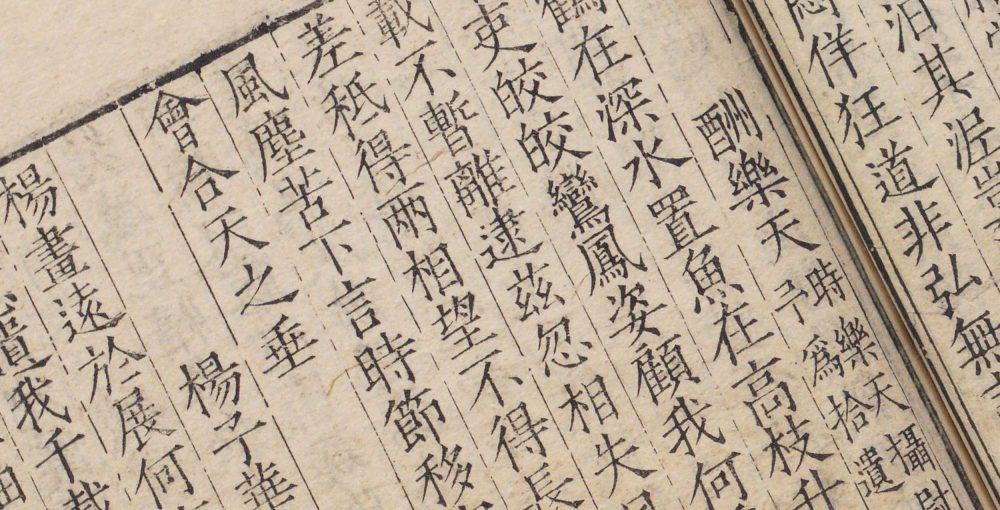 汩其泥豈
佯狂道非弘無
酬樂天 時樂天攝尉
予爲拾遺
鶴在深水置魚在高枝升
吏皎皎鸞鳳姿顧我何
載不暫離逮茲忽相失
差秪得兩相望不得長
風塵苦下言時節移
會合天之垂
楊子華
楊畫遠於展何
我千載